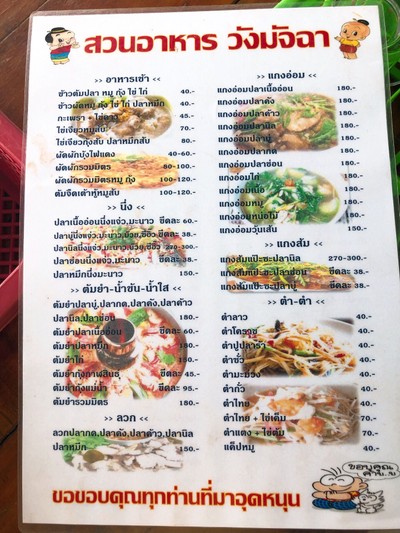 สวนอาหาร วังมัจฉา
>> อาหารเช้า <<
ข้าวต้มปลา หมู กุ้ง ไข่ ไก่ 40.-
ข้าวผัดหมู กุ้ง ไข่ ไก่ ปลาหมึก 40.-
กะเพรา + ไข่ดาว 45.-
ไข่เจียวหมูสับ 70.-
ไข่เจียวกุ้งสับ ปลาหมึกสับ 80.-
ผัดผักบุ้งไฟแดง 40-60.-
ผัดผักรวมมิตร 80-100.-
ผัดผักรวมมิตรหมู กุ้ง 100-120.-
ต้มจืดเต้าหู้หมูสับ 100-120.-
>> นึ่ง <<
ปลาเนื้ออ่อนนึ่งแจ่ว,มะนาว ขีดละ 60.-
ปลาบู่นึ่งแจ่ว,มะนาว,บ๊วย,ซีอิ้ว ขีดละ 38.-
ปลานิลนึ่งแจ่ว,มะนาว,บ๊วย,ซีอิ้ว 270-300.-
ปลาช่อนนึ่งแจ่ว,มะนาว ขีดละ 38.-
ปลาหมึกนึ่งมะนาว 150.-
>> ต้มยำ-น้ำข้น-น้ำใส <<
ต้มยำปลาบู่,ปลากด,ปลาคัง,ปลาค้าว
ปลานิล,ปลาช่อน 180.-
ต้มยำปลาเนื้ออ่อน ขีดละ 60.-
ต้มยำปลาหมึก 180.-
ต้มยำไก่ 150.-
ต้มยำกุ้งกาฬสินธุ์ ขีดละ 45.-
ต้มยำกุ้งแม่น้ำ ขีดละ 95.-
ต้มยำรวมมิตร 180.-
>> ลวก <<
ลวกปลากด,ปลาคัง,ปลาค้าว,ปลานิล
ปลาหมึก 150.-
>> แกงอ่อม <<
แกงอ่อมปลาเนื้ออ่อน 180.-
แกงอ่อมปลาคัง 180.-
แกงอ่อมปลาค้าว 180.-
แกงอ่อมปลานิล 180.-
แกงอ่อมปลาบู่ 180.-
แกงอ่อมปลากด 180.-
แกงอ่อมปลาช่อน 180.-
แกงอ่อมไก่ 180.-
แกงอ่อมเนื้อ 180.-
แกงอ่อมหมู 180.-
แกงอ่อมหน่อไม้ 180.-
แกงอ่อมวุ้นเส้น 150.-
>> แกงส้ม <<
แกงส้มแป๊ะซะปลานิล 270-300.-
แกงส้มแป๊ะซะปลาช่อน ขีดละ 38.-
แกงส้มแป๊ะซะปลาบู่ ขีดละ 38.-
>> ตำ-ตำ <<
ตำลาว 40.-
ตำโคราช 40.-
ตำปูปลาร้า 40.-
ตำซั่ว 40.-
ตำมะม่วง 40.-
ตำถั่ว 40.-
ตำไทย 40.-
ตำไทย + ไข่เค็ม 70.-
ตำแตง + ไข่ต้ม 70.-
แค็ปหมู 40.-
ขอบคุณ
ขอขอบคุณทุกท่านที่มาอุดหนุน